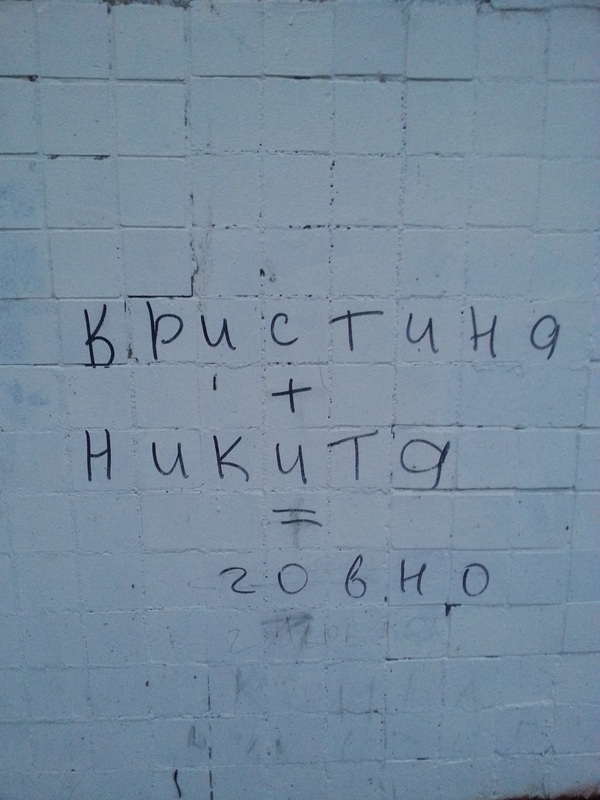 Кристина
+
Никита
=
говно